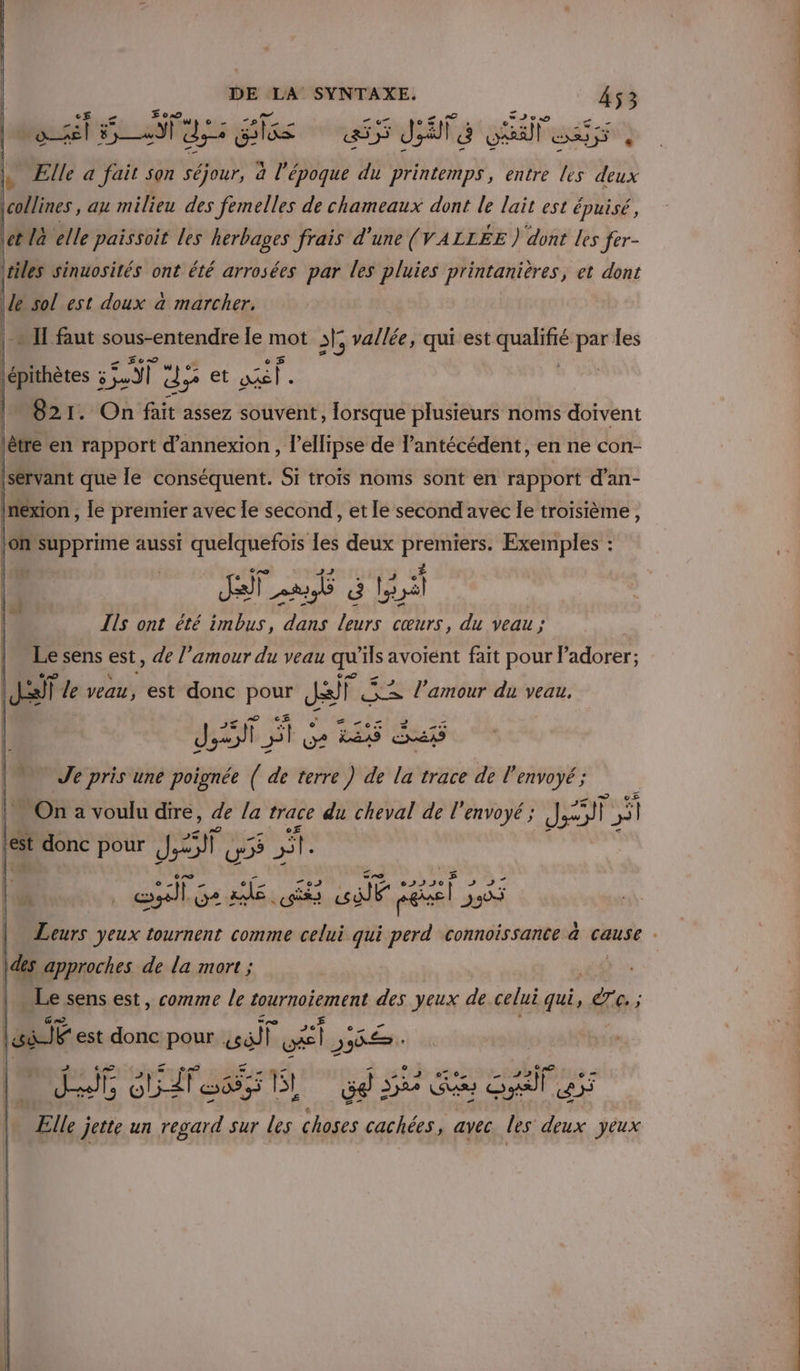 DE LA SYNTAXE. 453
تَرَبَّعَتِ ٱلْقُفَّيْنِ فِى ٱلشَّوْلِ تَرْتَعِى حَدَائِقَ مَوْلِىِّ ٱلْأَسِرَّةِ أَغْيَدِ
Elle a fait son séjour, à l'époque du printemps, entre les deux
collines, au milieu des femelles de chameaux dont le lait est épuisé,
et là elle paissoit les herbages frais d'une (VALLÉE) dont les fer-
tiles sinuosités ont été arrosées par les pluies printanières, et dont
le sol est doux à marcher.
Il faut sous-entendre le mot وَادٍ vallée, qui est qualifié par les
épithètes مَوْلِىِّ ٱلْأَسِرَّةِ et أَغْيَدِ.
821. On fait assez souvent, lorsque plusieurs noms doivent
être en rapport d'annexion, l'ellipse de l'antécédent, en ne con-
servant que le conséquent. Si trois noms sont en rapport d'an-
nexion, le premier avec le second, et le second avec le troisième,
on supprime aussi quelquefois les deux premiers. Exemples :
أُشْرِبُوا فِى قُلُوبِهِمِ ٱلْعِجْلَ
Ils ont été imbus, dans leurs cœurs, du veau;
Le sens est, de l'amour du veau qu'ils avoient fait pour l'adorer;
ٱلْعِجْلَ le veau, est donc pour حُبَّ ٱلْعِجْلِ l'amour du veau.
قَبَضْتُ قَبْضَةً مِنْ أَثَرِ ٱلرَّسُولِ
Je pris une poignée (de terre) de la trace de l'envoyé;
On a voulu dire, de la trace du cheval de l'envoyé; أَثَرِ ٱلرَّسُولِ
est donc pour أَثَرِ فَرَسِ ٱلرَّسُولِ.
تَدُورُ أَعْيُنُهُمْ كَٱلَّذِى يُغْشَى عَلَيْهِ مِنَ ٱلْمَوْتِ
Leurs yeux tournent comme celui qui perd connoissance à cause
des approches de la mort;
Le sens est, comme le tournoiement des yeux de celui qui, &c.;
كَٱلَّذِى est donc pour كَدَوْرِ أَعْيُنِ ٱلَّذِى.
تَرْمِى ٱلْغُيُوبَ بِعَيْنَىْ مُفْرَدٍ لَهِقٍ إِذَا تَوَقَّدَتِ ٱلْحُزَّانُ وَٱلْمِيلُ
Elle jette un regard sur les choses cachées, avec les deux yeux